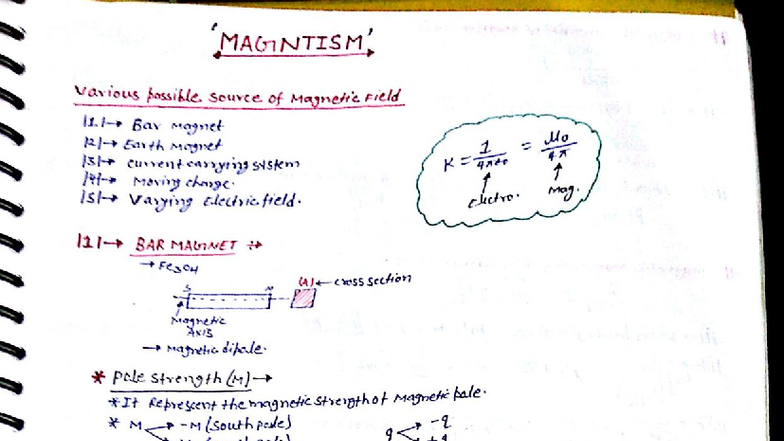 'MAGNTISM'
Various possible source of Magnetic Field
|1|→ Bar magnet
|2|→ Earth Magnet
|3|→ current carrying system
|4|→ Moving charge.
|5|→ Varying Electric field.
K = 1/4πε0 = μ0/4π
Electro. Mag.
|1|→ BAR MAGNET →
→ Fe3O4
S N (A) ← cross section
Magnetic
Axis
→ Magnetic dipole.
* Pole strength (M) →
* It Represent the magnetic strength of Magnetic pole.
* M → -M (south pole) q → -q